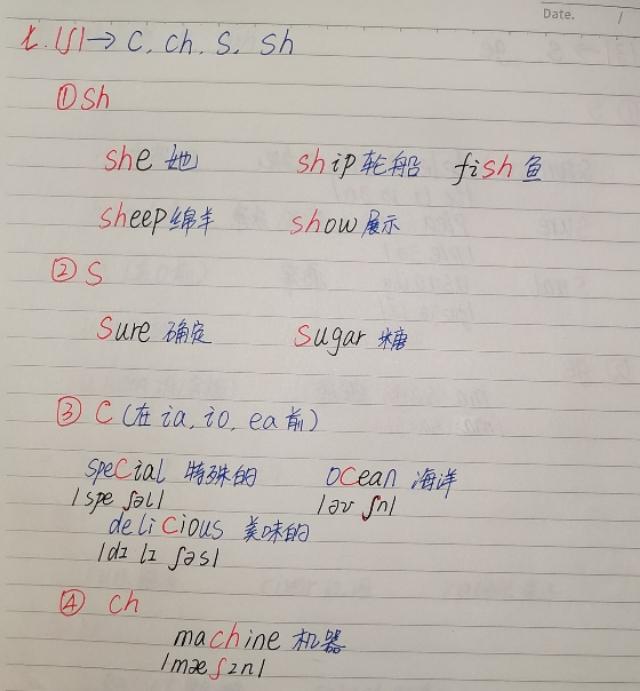 Date. /
七. /ʃ/→ c. ch. s. sh
①sh
she 她 ship 轮船 fish 鱼
sheep 绵羊 show 展示
② s
sure 确定 sugar 糖
③ c (在 ia, io, ea 前)
special 特殊的 ocean 海洋
/spe ʃəl/ /əʊ ʃn/
delicious 美味的
/dɪ lɪ ʃəs/
④ ch
machine 机器
/mæ ʃɪn/